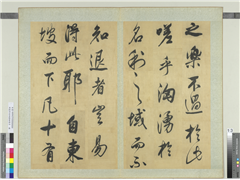 之樂不過於此
嗟乎洶湧於
名利之域而不
知退者豈易
得此耶 自東
坡而下凡十首